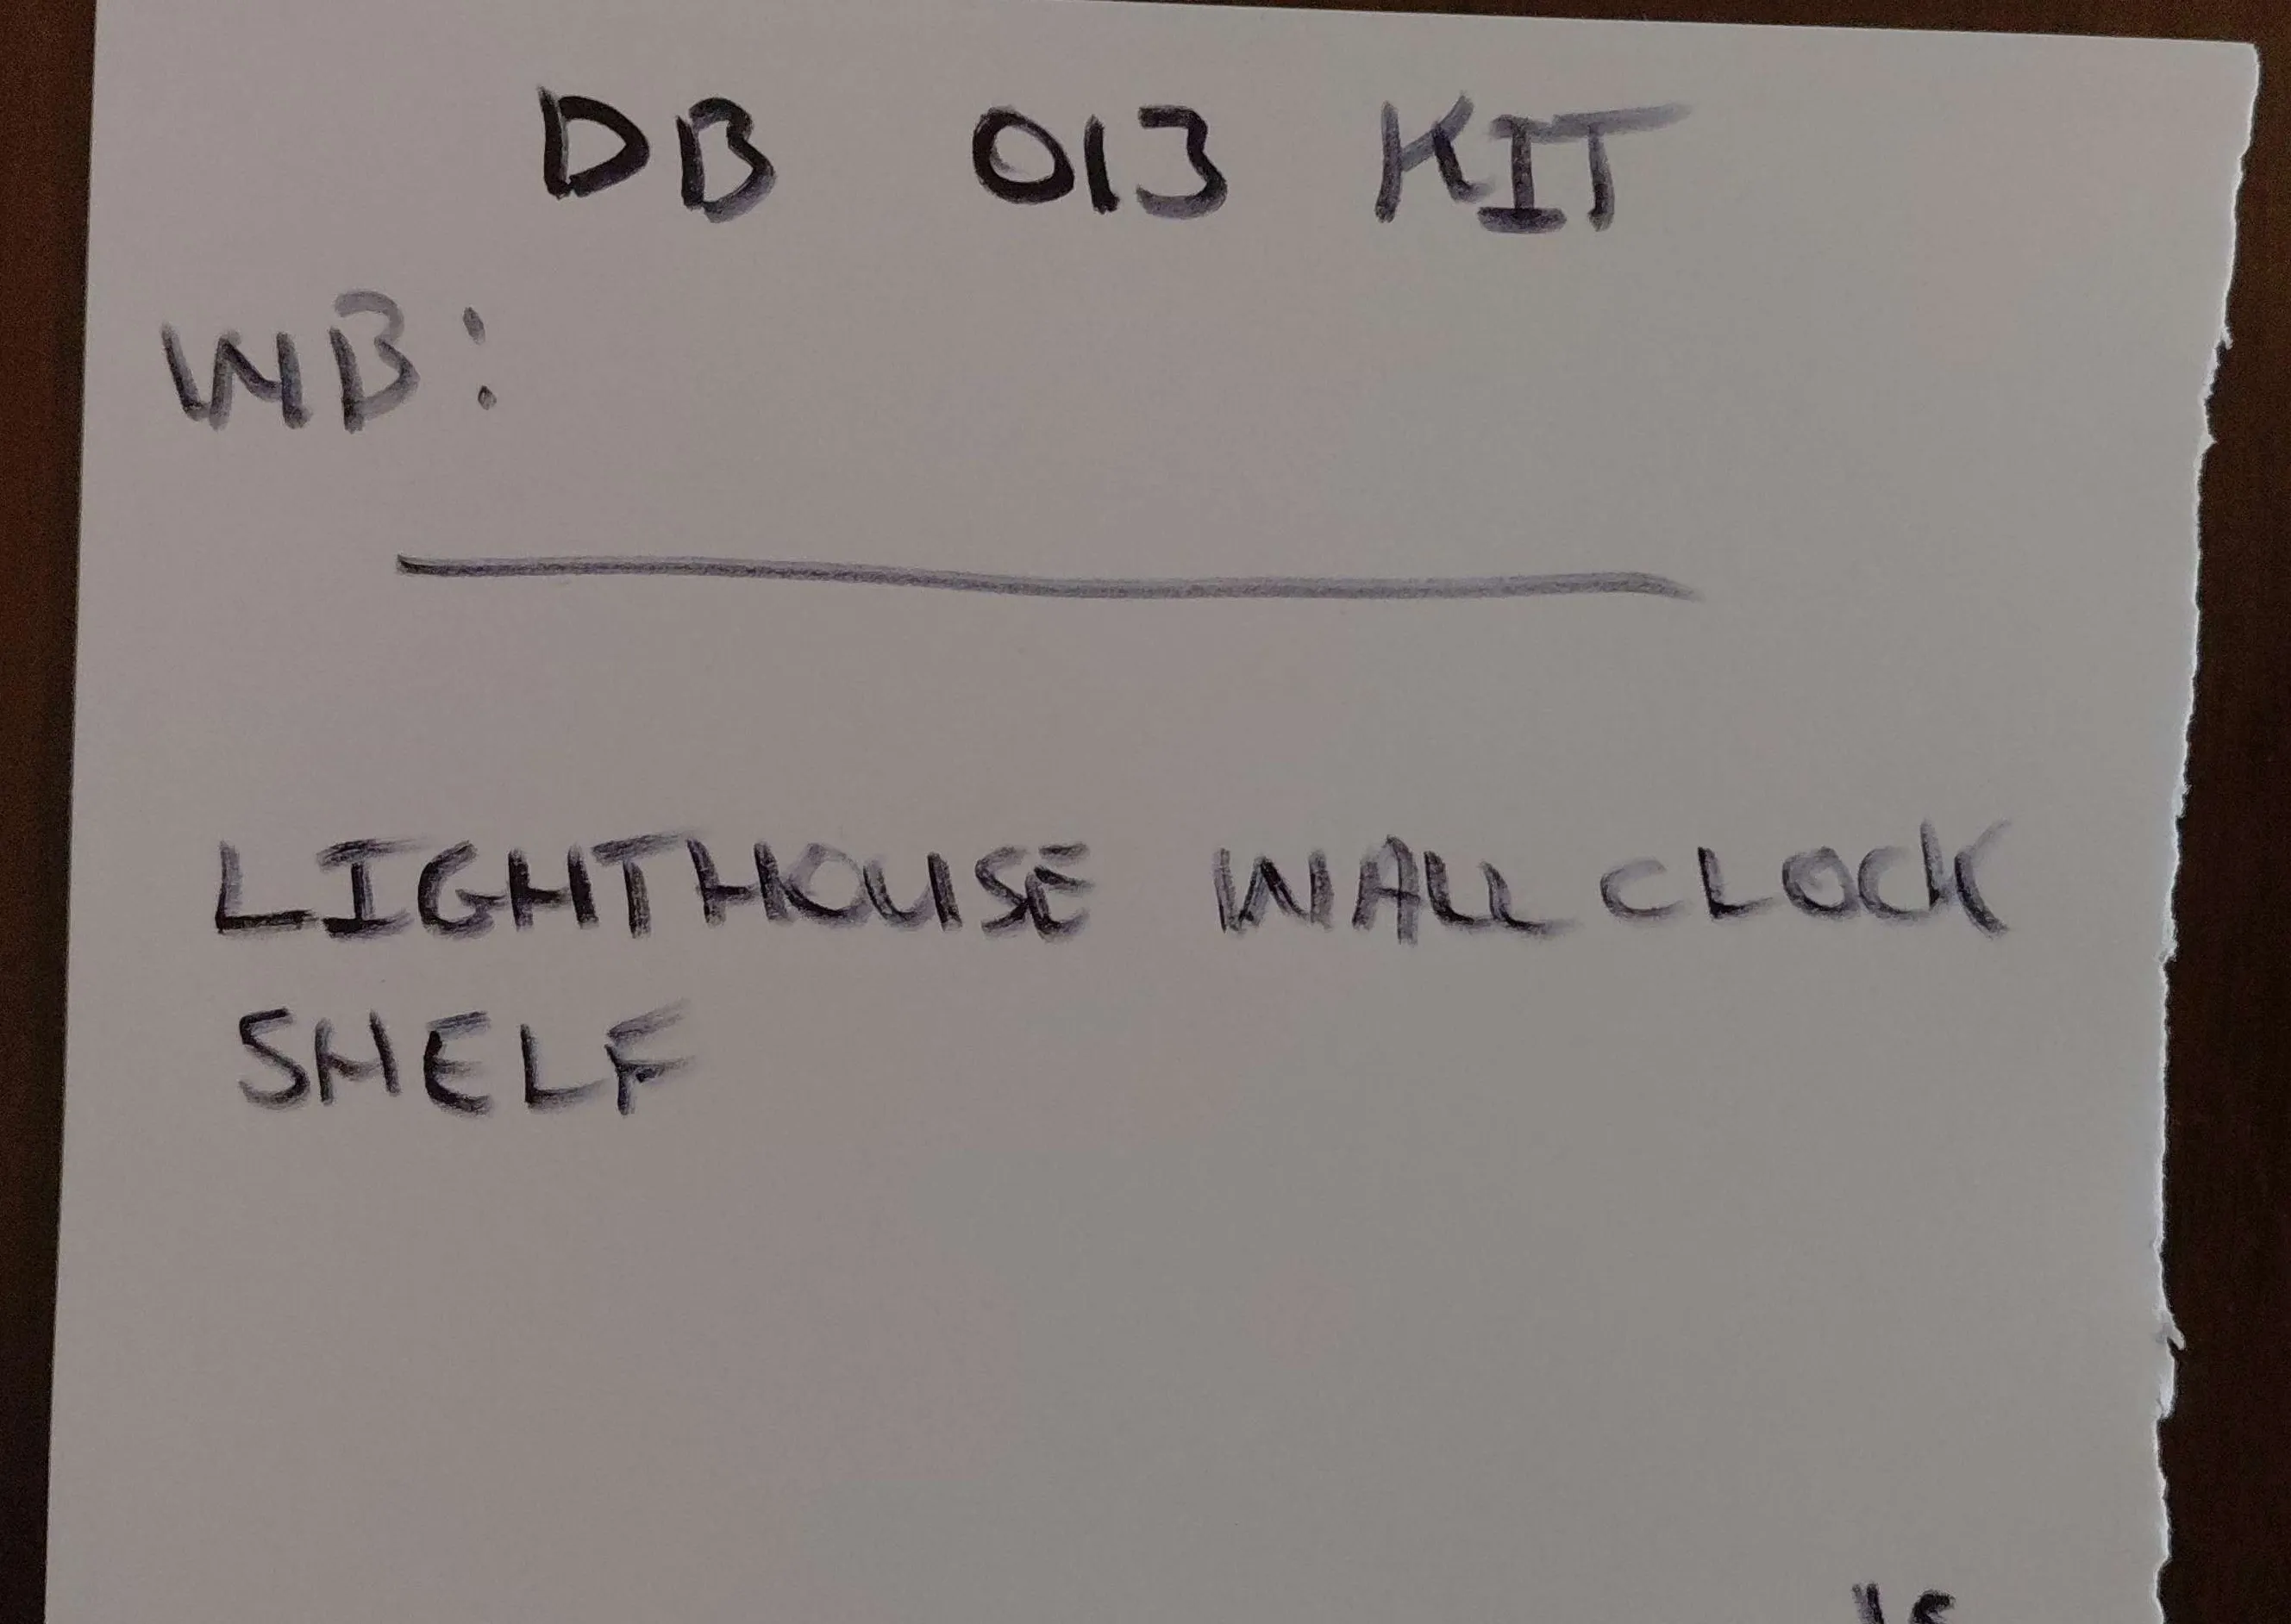 DB 013 KIT
WB:
LIGHTHOUSE WALL CLOCK
SHELF